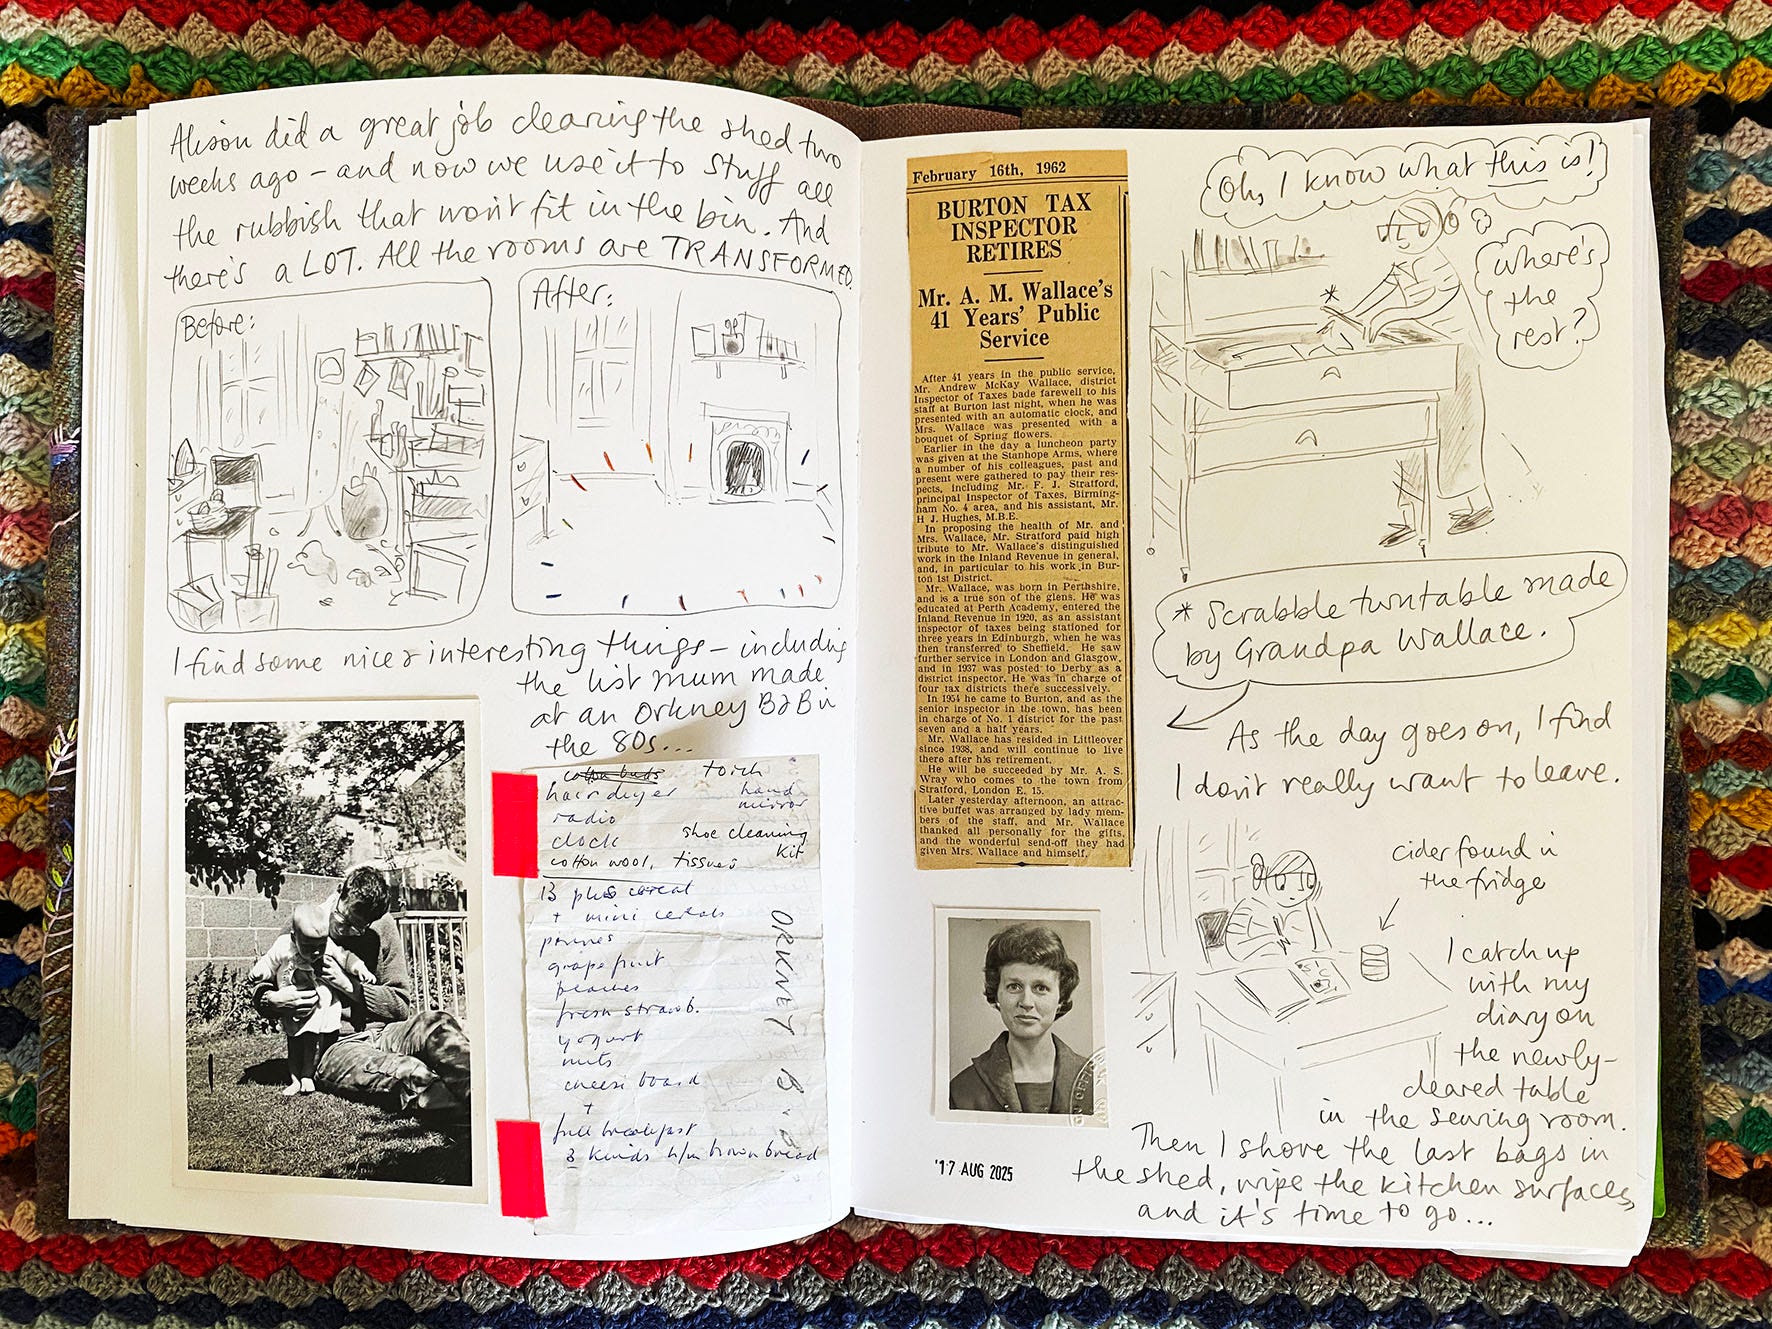 Alison did a great job clearing the shed two
weeks ago – and now we use it to stuff all
the rubbish that won't fit in the bin. And
there's a LOT. All the rooms are TRANSFORMED.
Before:
After:
I find some nice & interesting things – including
the list mum made
at an Orkney B&B in
the 80s...
cotton buds torch
hairdryer hand
mirror
radio
clock shoe cleaning
kit
cotton wool, tissues
13 plus cereal
+ mini cereals
prunes
grapefruit
peaches
fresh strawb.
yogurt
nuts
cheese board
+
full breakfast
3 kinds h/m brown bread
ORKNEY B.B
February 16th, 1962
BURTON TAX
INSPECTOR
RETIRES
Mr. A. M. Wallace's
41 Years' Public
Service
After 41 years in the public service,
Mr. Andrew McKay Wallace, district
Inspector of Taxes bade farewell to his
staff at Burton last night, when he was
presented with an automatic clock, and
Mrs. Wallace was presented with a
bouquet of Spring flowers.
Earlier in the day a luncheon party
was given at the Stanhope Arms, where
a number of his colleagues, past and
present were gathered to pay their res-
pects, including Mr. F. J. Stratford,
principal Inspector of Taxes, Birming-
ham No. 4 area, and his assistant, Mr.
H J. Hughes, M.B.E.
In proposing the health of Mr. and
Mrs. Wallace, Mr. Stratford paid high
tribute to Mr. Wallace's distinguished
work in the Inland Revenue in general,
and, in particular to his work in Bur-
ton 1st District.
Mr. Wallace, was born in Perthshire,
and is a true son of the glens. He was
educated at Perth Academy, entered the
Inland Revenue in 1920, as an assistant
inspector of taxes being stationed for
three years in Edinburgh, when he was
then transferred to Sheffield. He saw
further service in London and Glasgow,
and in 1937 was posted to Derby as a
district inspector. He was in charge of
four tax districts there successively.
In 1954 he came to Burton, and as the
senior inspector in the town, has been
in charge of No. 1 district for the past
seven and a half years.
Mr. Wallace has resided in Littleover
since 1938, and will continue to live
there after his retirement.
He will be succeeded by Mr. A. S.
Wray who comes to the town from
Stratford, London E. 15.
Later yesterday afternoon, an attrac-
tive buffet was arranged by lady mem-
bers of the staff, and Mr. Wallace
thanked all personally for the gifts,
and the wonderful send-off they had
given Mrs. Wallace and himself.
'17 AUG 2025
Oh, I know what this is!
where's
the
rest?
*
* Scrabble turntable made
by Grandpa Wallace.
As the day goes on, I find
I don't really want to leave.
cider found in
the fridge
I catch up
with my
diary on
the newly-
cleared table
in the sewing room.
Then I shove the last bags in
the shed, wipe the kitchen surfaces,
and it's time to go...